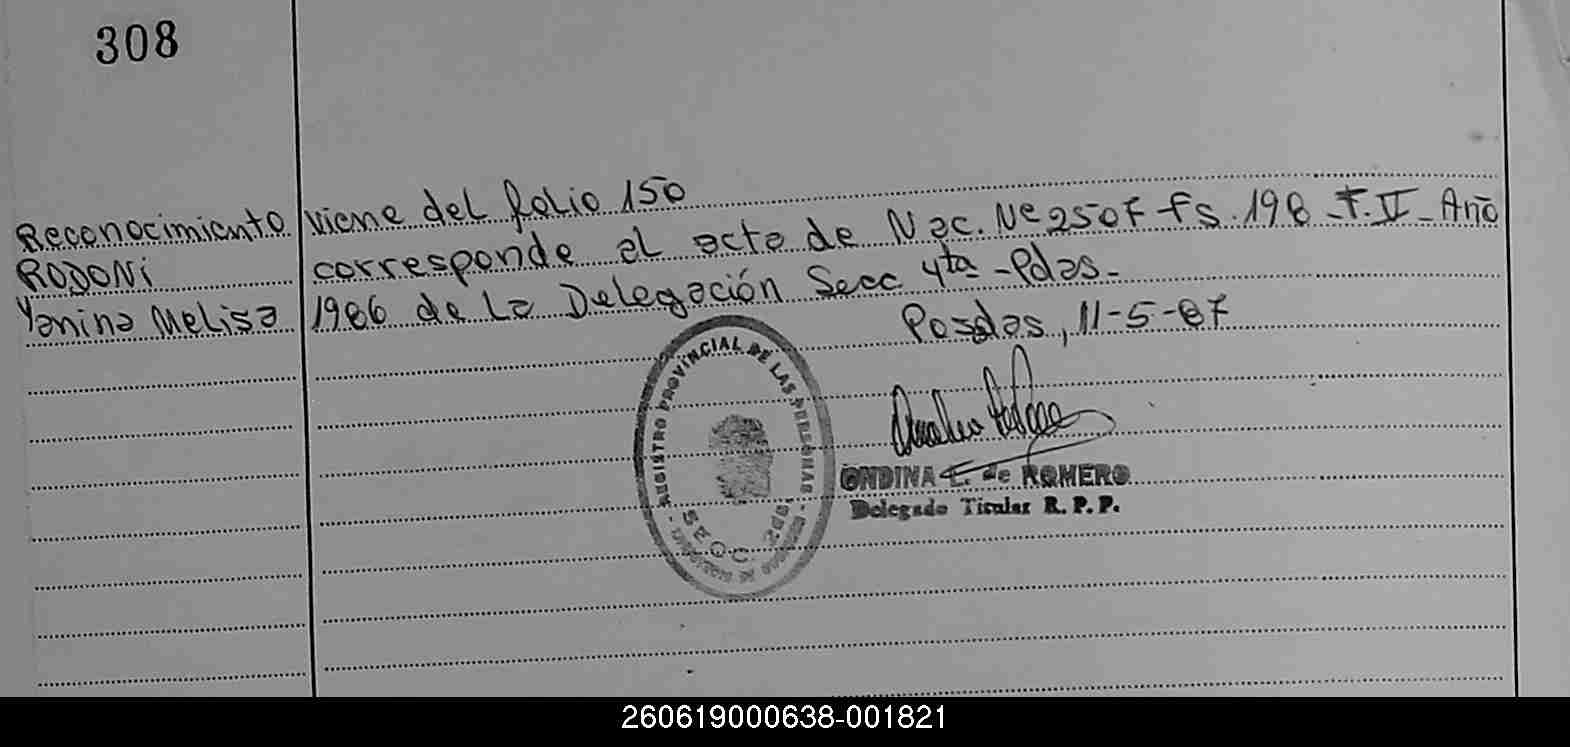 308
Reconocimiento viene del folio 150
RODONi corresponde al acta de Nac. Nº 2507 - fs. 198 - T. II - Año
Yanina Melisa 1986 de La Delegación Secc 4ta - Pdas -
Posadas, 11-5-87
REGISTRO PROVINCIAL DE LAS PERSONAS
ONDINA E. de ROMERO
Delegado Titular R. P. P.
260619000638-001821